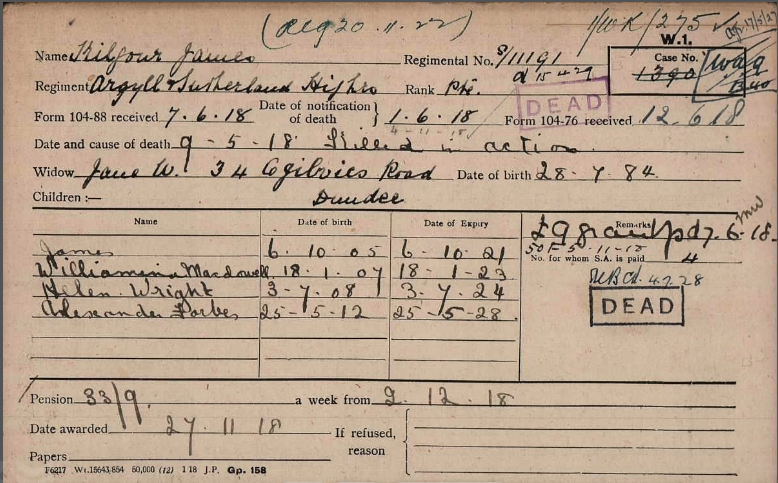 (Reg 20.11.22) 1/WK/275
W.1.
Name Kilgour James Regimental No. S/11191 Case No.
1390
Regiment Argyll & Sutherland Highrs Rank Pte.
DEAD
Form 104-88 received 7.6.18 Date of notification of death } 1.6.18 Form 104-76 received 12.6.18
4-11-18
Date and cause of death 9-5-18 Killed in action.
Widow Jane W. 34 Ogilvies Road Date of birth 28-7-84.
Children :— Dundee
Name Date of birth Date of Expiry Remarks
£9 grant pd 7.6.18.
James 6.10.05 6-10-21
No. for whom S.A. is paid 4
Williamina Macdowell 18.1.07 18-1-23
Helen Wright 3-7.08 3.7.24
Alexander Forbes 25-5-12 25-5-28.
DEAD
Pension 33/9. a week from 2.12.18
Date awarded 27.11.18 If refused, reason
Papers
F6217 Wt.15643/854 50,000 (12) 1 18 J.P. Gp. 158